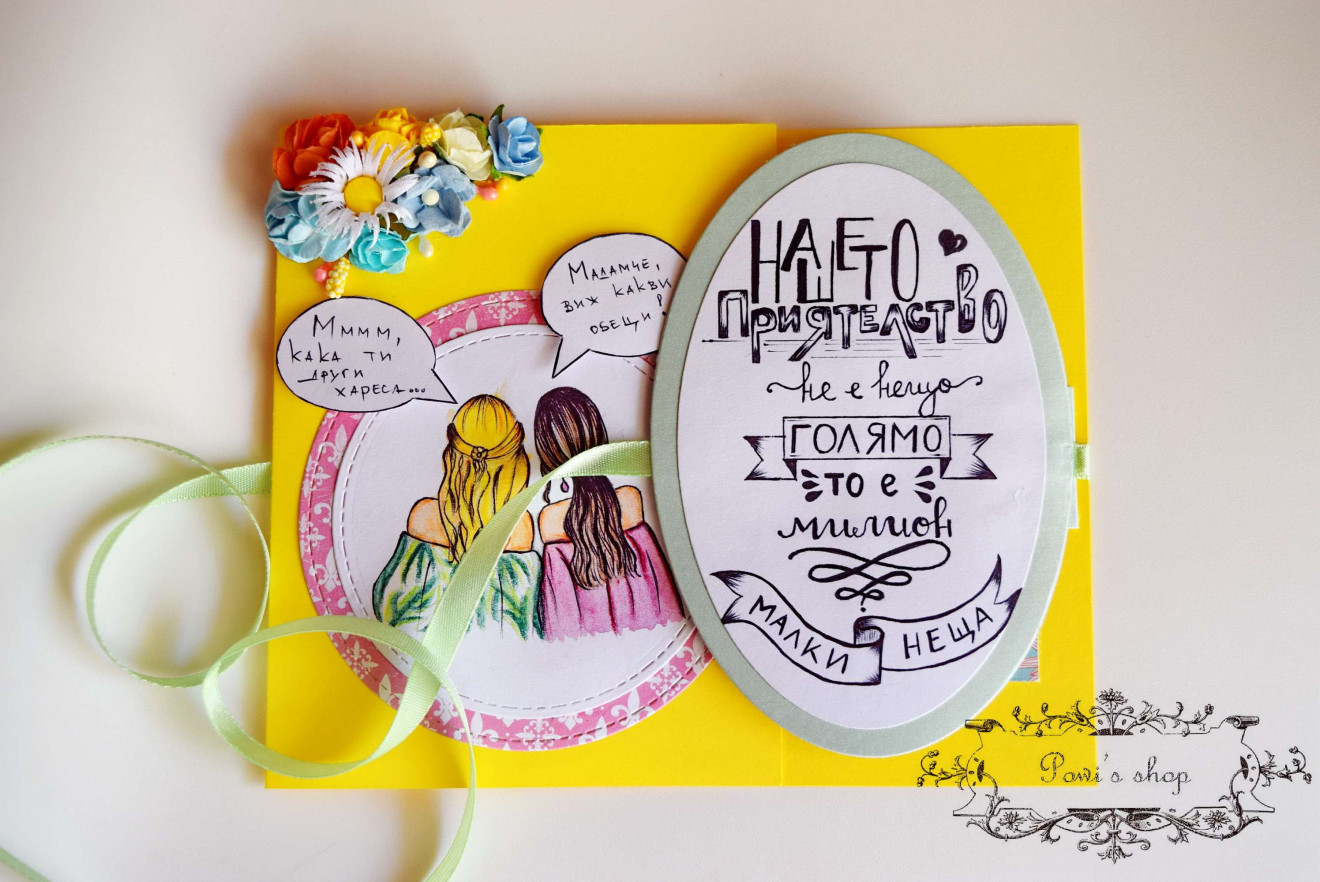 Мммм,
кака ти
други
хареса...
Мадамче,
виж какви
обещи!
НАШЕТО
ПРИЯТЕЛСТВО
не е нещо
ГОЛЯМО
ТО е
милион
МАЛКИ НЕЩА
Powi's shop